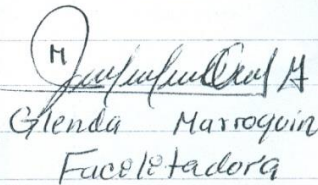 Glenda Marroquin
Facelitadora